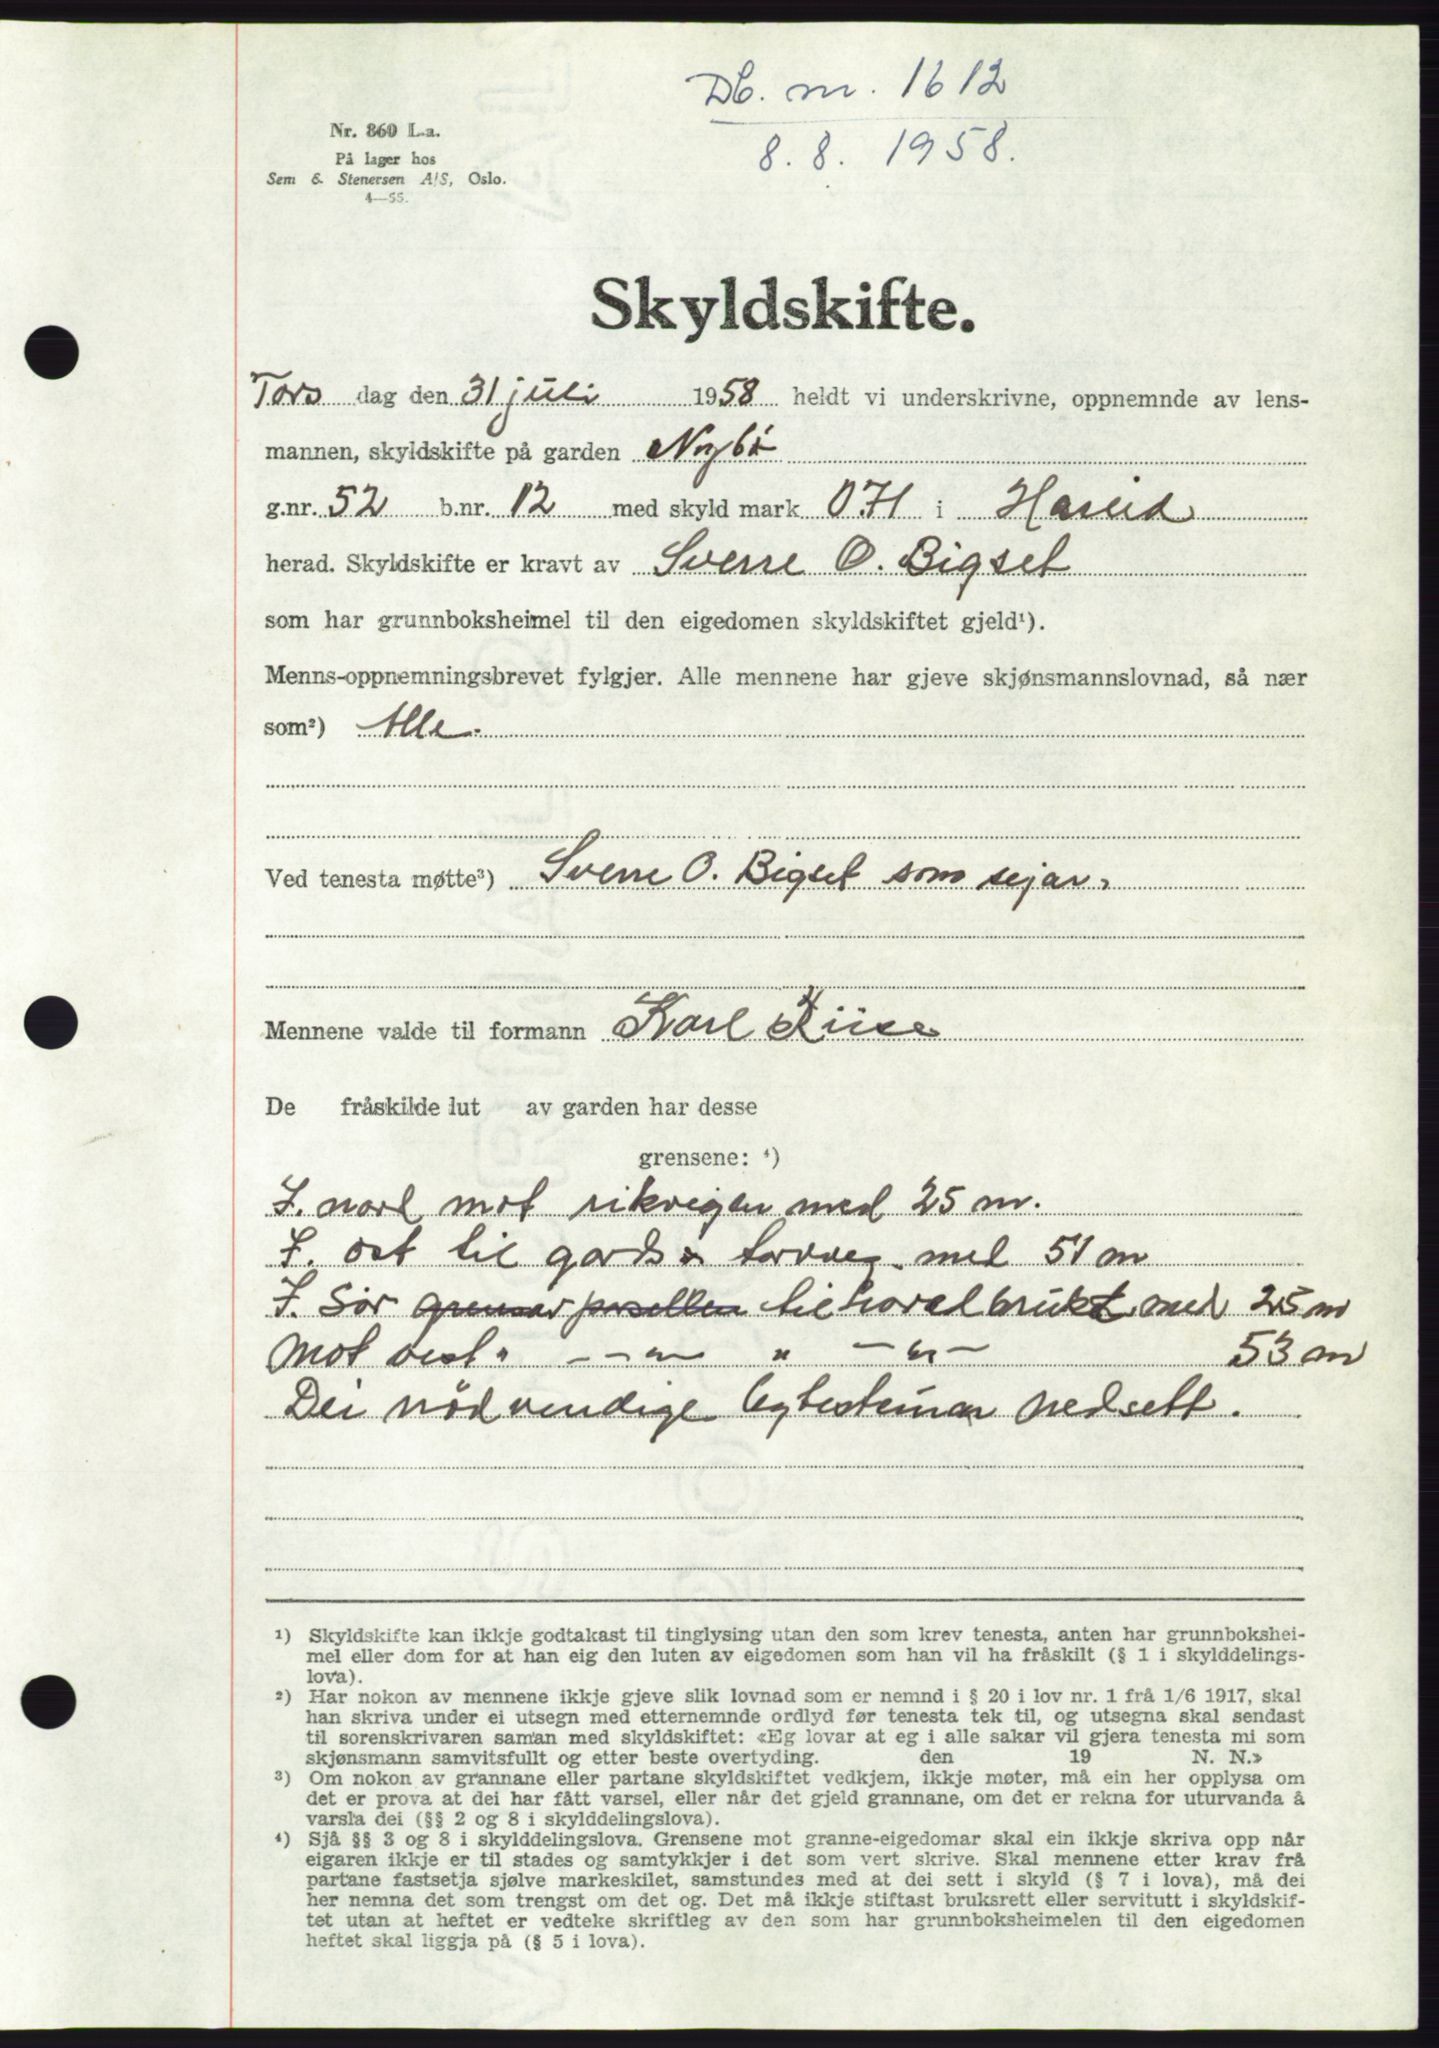 Db. nr. 1612
8. 8. 1958.
Nr. 860 L.a.
På lager hos
Sem & Stenersen A/S, Oslo.
4—55.
Skyldskifte.
Tors dag den 31 juli 1958 heldt vi underskrivne, oppnemnde av lens-
mannen, skyldskifte på garden Nybö
g.nr. 52 b.nr. 12 med skyld mark 071 i Hareid
herad. Skyldskifte er kravt av Sverre O. Bigset
som har grunnboksheimel til den eigedomen skyldskiftet gjeld¹).
Menns-oppnemningsbrevet fylgjer. Alle mennene har gjeve skjønsmannslovnad, så nær
som²) Alle.
Ved tenesta møtte³) Sverre O. Bigset som sejar,
Mennene valde til formann Karl Riise
De fråskilde lut av garden har desse
grensene: ⁴)
I. nord mot rikvegen med 25 m.
I. ost til gards torvveg med 51 m
I. Sör grensar parsellen til hovedbruket med 25 m
Mot vest " — — " — " — " — 53 m
Dei nödvendige bytesteinar nedsett.
¹) Skyldskifte kan ikkje godtakast til tinglysing utan den som krev tenesta, anten har grunnbokshei-
mel eller dom for at han eig den luten av eigedomen som han vil ha fråskilt (§ 1 i skylddelings-
lova).
²) Har nokon av mennene ikkje gjeve slik lovnad som er nemnd i § 20 i lov nr. 1 frå 1/6 1917, skal
han skriva under ei utsegn med etternemnde ordlyd før tenesta tek til, og utsegna skal sendast
til sorenskrivaren saman med skyldskiftet: «Eg lovar at eg i alle sakar vil gjera tenesta mi som
skjønsmann samvitsfullt og etter beste overtyding. den 19 N. N.»
³) Om nokon av grannane eller partane skyldskiftet vedkjem, ikkje møter, må ein her opplysa om
det er prova at dei har fått varsel, eller når det gjeld grannane, om det er rekna for uturvanda å
varsla dei (§§ 2 og 8 i skylddelingslova).
⁴) Sjå §§ 3 og 8 i skylddelingslova. Grensene mot granne-eigedomar skal ein ikkje skriva opp når
eigaren ikkje er til stades og samtykkjer i det som vert skrive. Skal mennene etter krav frå
partane fastsetja sjølve markeskilet, samstundes med at dei sett i skyld (§ 7 i lova), må dei
her nemna det som trengst om det og. Det må ikkje stiftast bruksrett eller servitutt i skyldskif-
tet utan at heftet er vedteke skriftleg av den som har grunnboksheimelen til den eigedomen
heftet skal liggja på (§ 5 i lova).